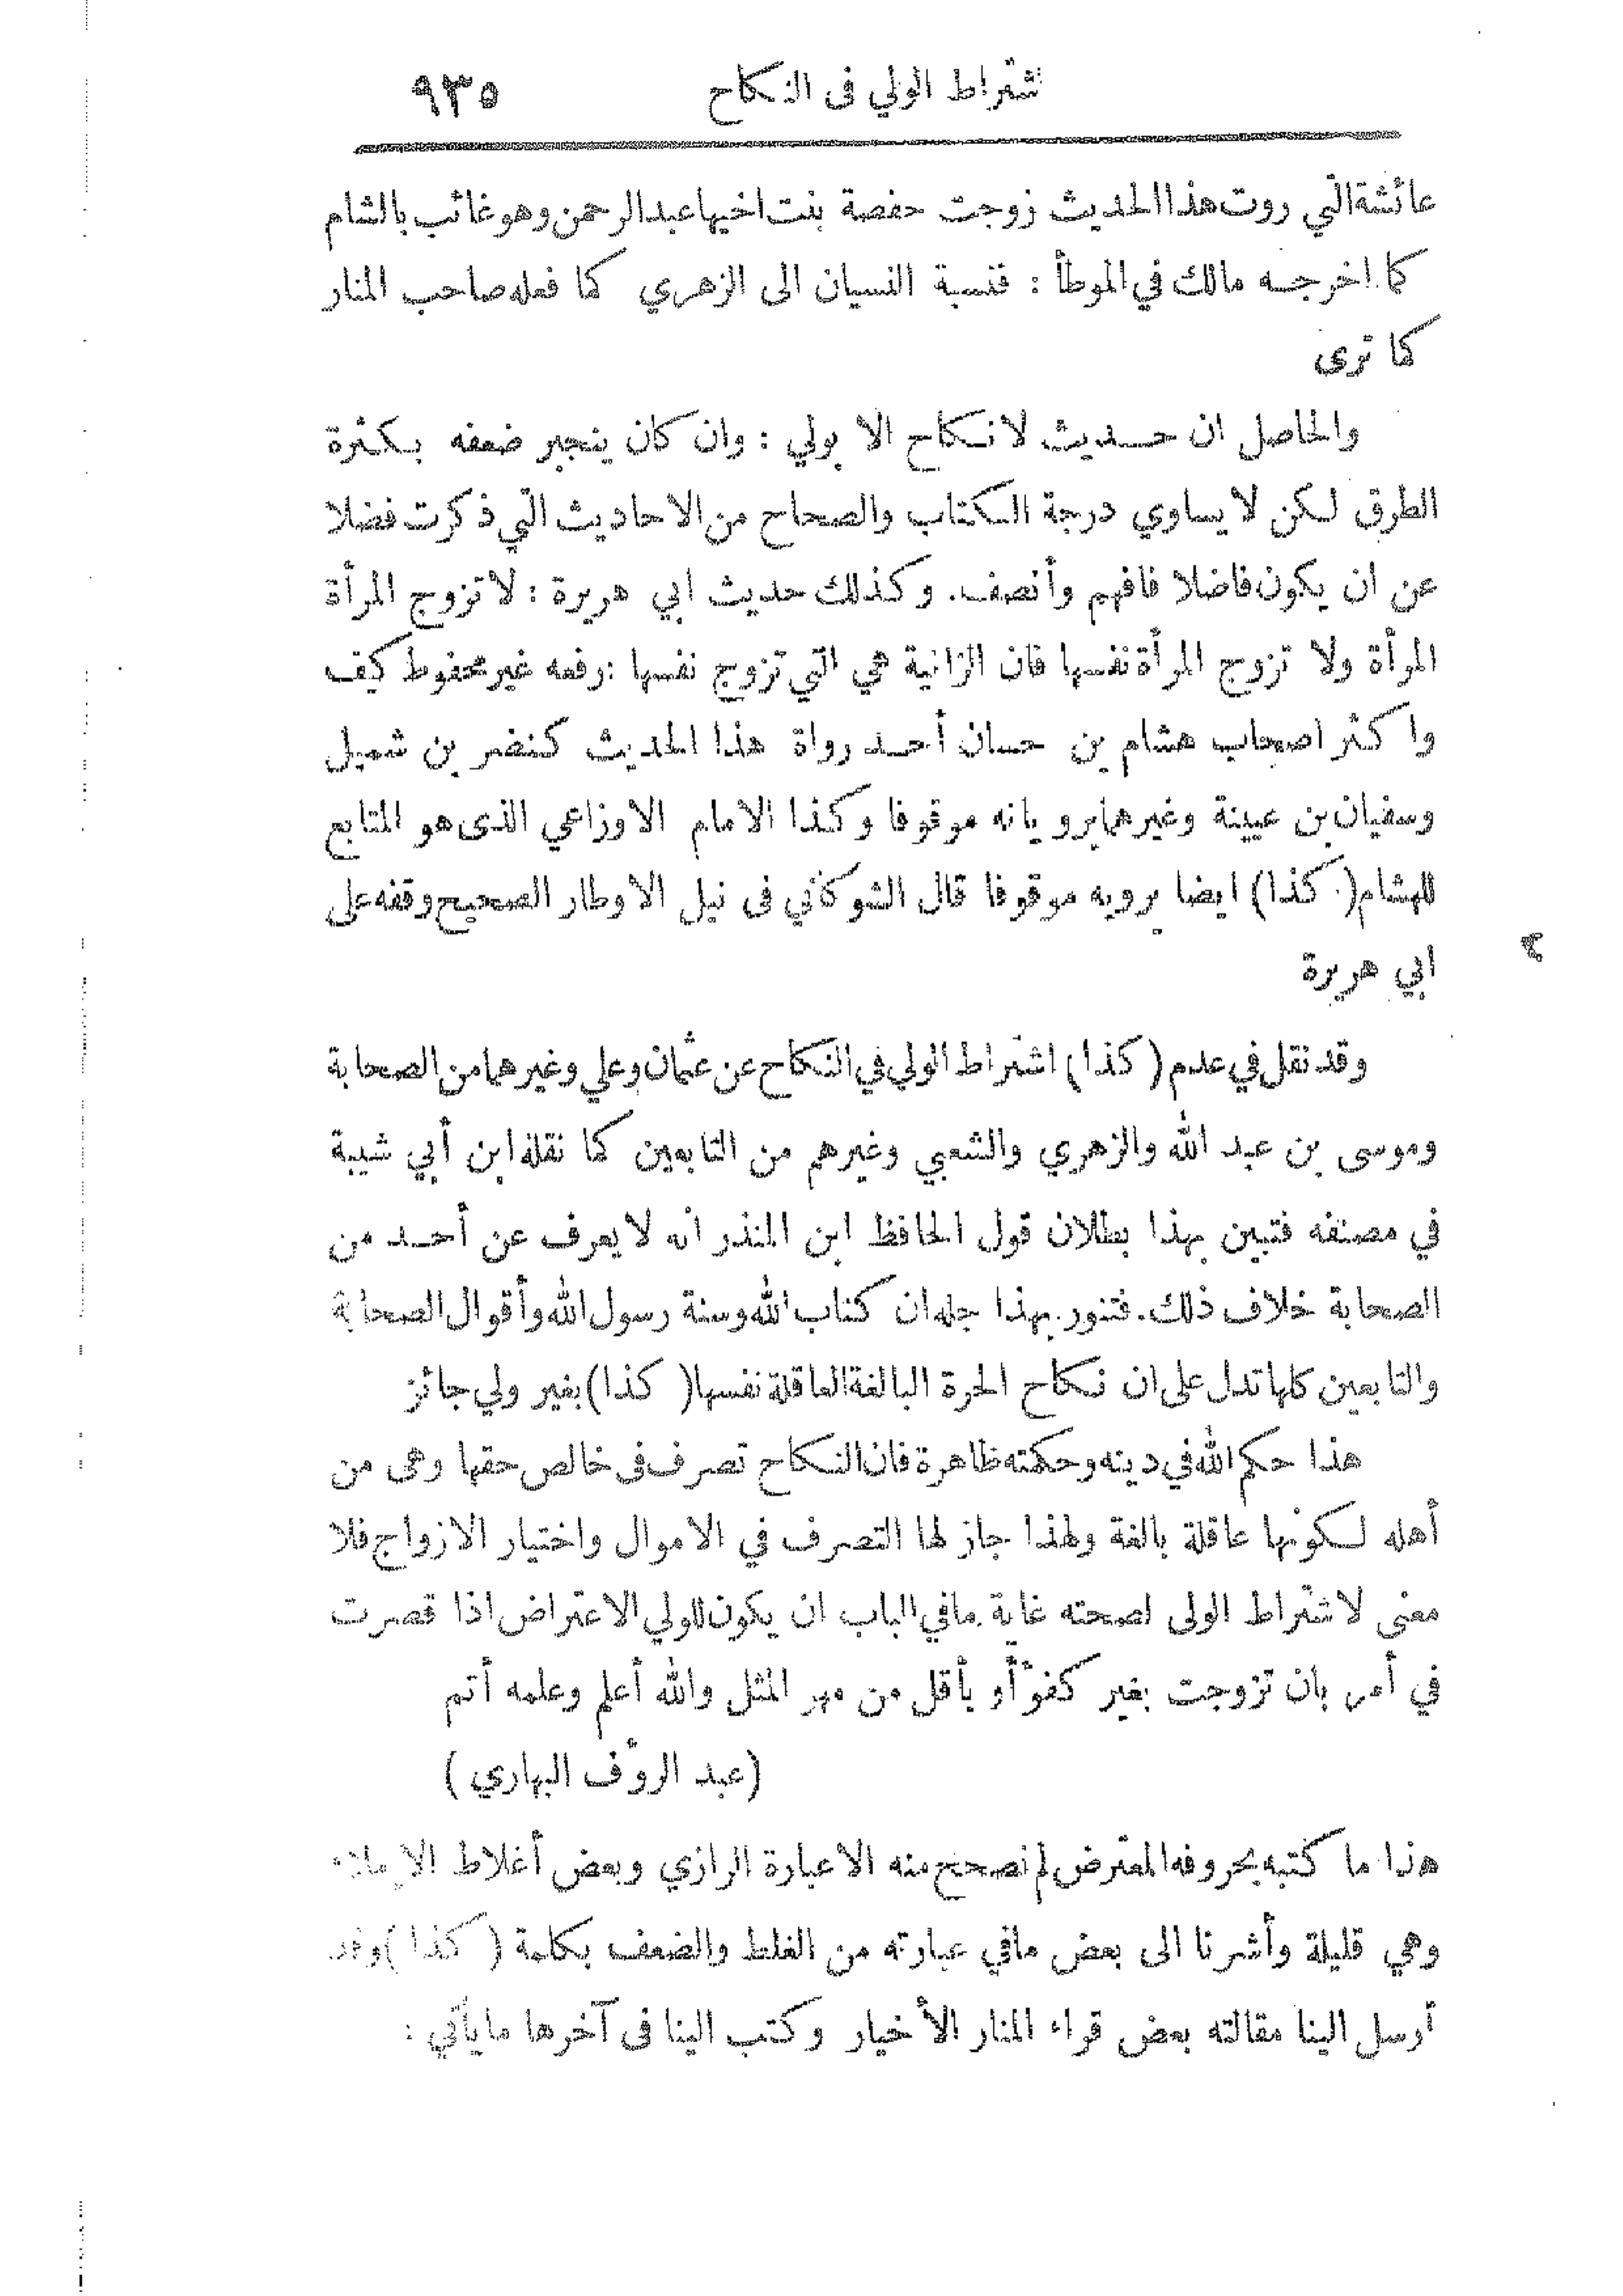 اشتراط الولي فى النكاح ٩٣٥
عائشة التي روت هذا الحديث زوجت حفصة بنت اخيها عبد الرحمن وهو غائب بالشام
كما اخرجه مالك في الموطأ : فنسبة النسيان الى الزهري كما فعله صاحب المنار
كما ترى
والحاصل ان حديث لا نكاح الا بولي : وان كان ينجبر ضعفه بكثرة
الطرق لكن لا يساوي درجة الكتاب والصحاح من الاحاديث التي ذكرت فضلا
عن ان يكون فاضلا فافهم وأنصف . وكذلك حديث ابي هريرة : لا تزوج المرأة
المرأة ولا تزوج المرأة نفسها فان الزانية هي التي تزوج نفسها : رفعه غير محفوظ كيف
واكثر اصحاب هشام بن حسان أحد رواة هذا الحديث كنضر بن شميل
وسفيان بن عيينة وغيرهما يرويانه موقوفا وكذا الامام الاوزاعي الذى هو المتابع
للهشام ( كذا ) ايضا يرويه موقوفا قال الشوكاني فى نيل الاوطار الصحيح وقفه على
ابي هريرة
وقد نقل في عدم ( كذا ) اشتراط الولي في النكاح عن عثمان وعلي وغيرهما من الصحابة
وموسى بن عبد الله والزهري والشعبي وغيرهم من التابعين كما نقله ابن أبي شيبة
في مصنفه فتبين بهذا بطلان قول الحافظ ابن المنذر انه لا يعرف عن أحد من
الصحابة خلاف ذلك . فتنور بهذا جله ان كتاب الله وسنة رسول الله وأقوال الصحابة
والتابعين كلها تدل على ان نكاح الحرة البالغة العاقلة نفسها ( كذا ) بغير ولي جائز
هذا حكم الله في دينه وحكمته ظاهرة فان النكاح تصرف فى خالص حقها وهى من
أهله لكونها عاقلة بالغة ولهذا جاز لها التصرف في الاموال واختيار الازواج فلا
معنى لاشتراط الولى لصحته غاية ما في الباب ان يكون للولي الاعتراض اذا قصرت
في أمر بان تزوجت بغير كفؤ أو بأقل من مهر المثل والله أعلم وعلمه أتم
( عبد الرؤف البهاري )
هذا ما كتبه بحروفه المعترض لم نصحح منه الا عبارة الرازي وبعض أغلاط الاملاء
وهي قليلة وأشرنا الى بعض ما في عبارته من الغلط والضعف بكلمة ( كذا ) وقد
أرسل الينا مقالته بعض قراء المنار الأخيار وكتب الينا فى آخرها ما يأتي :